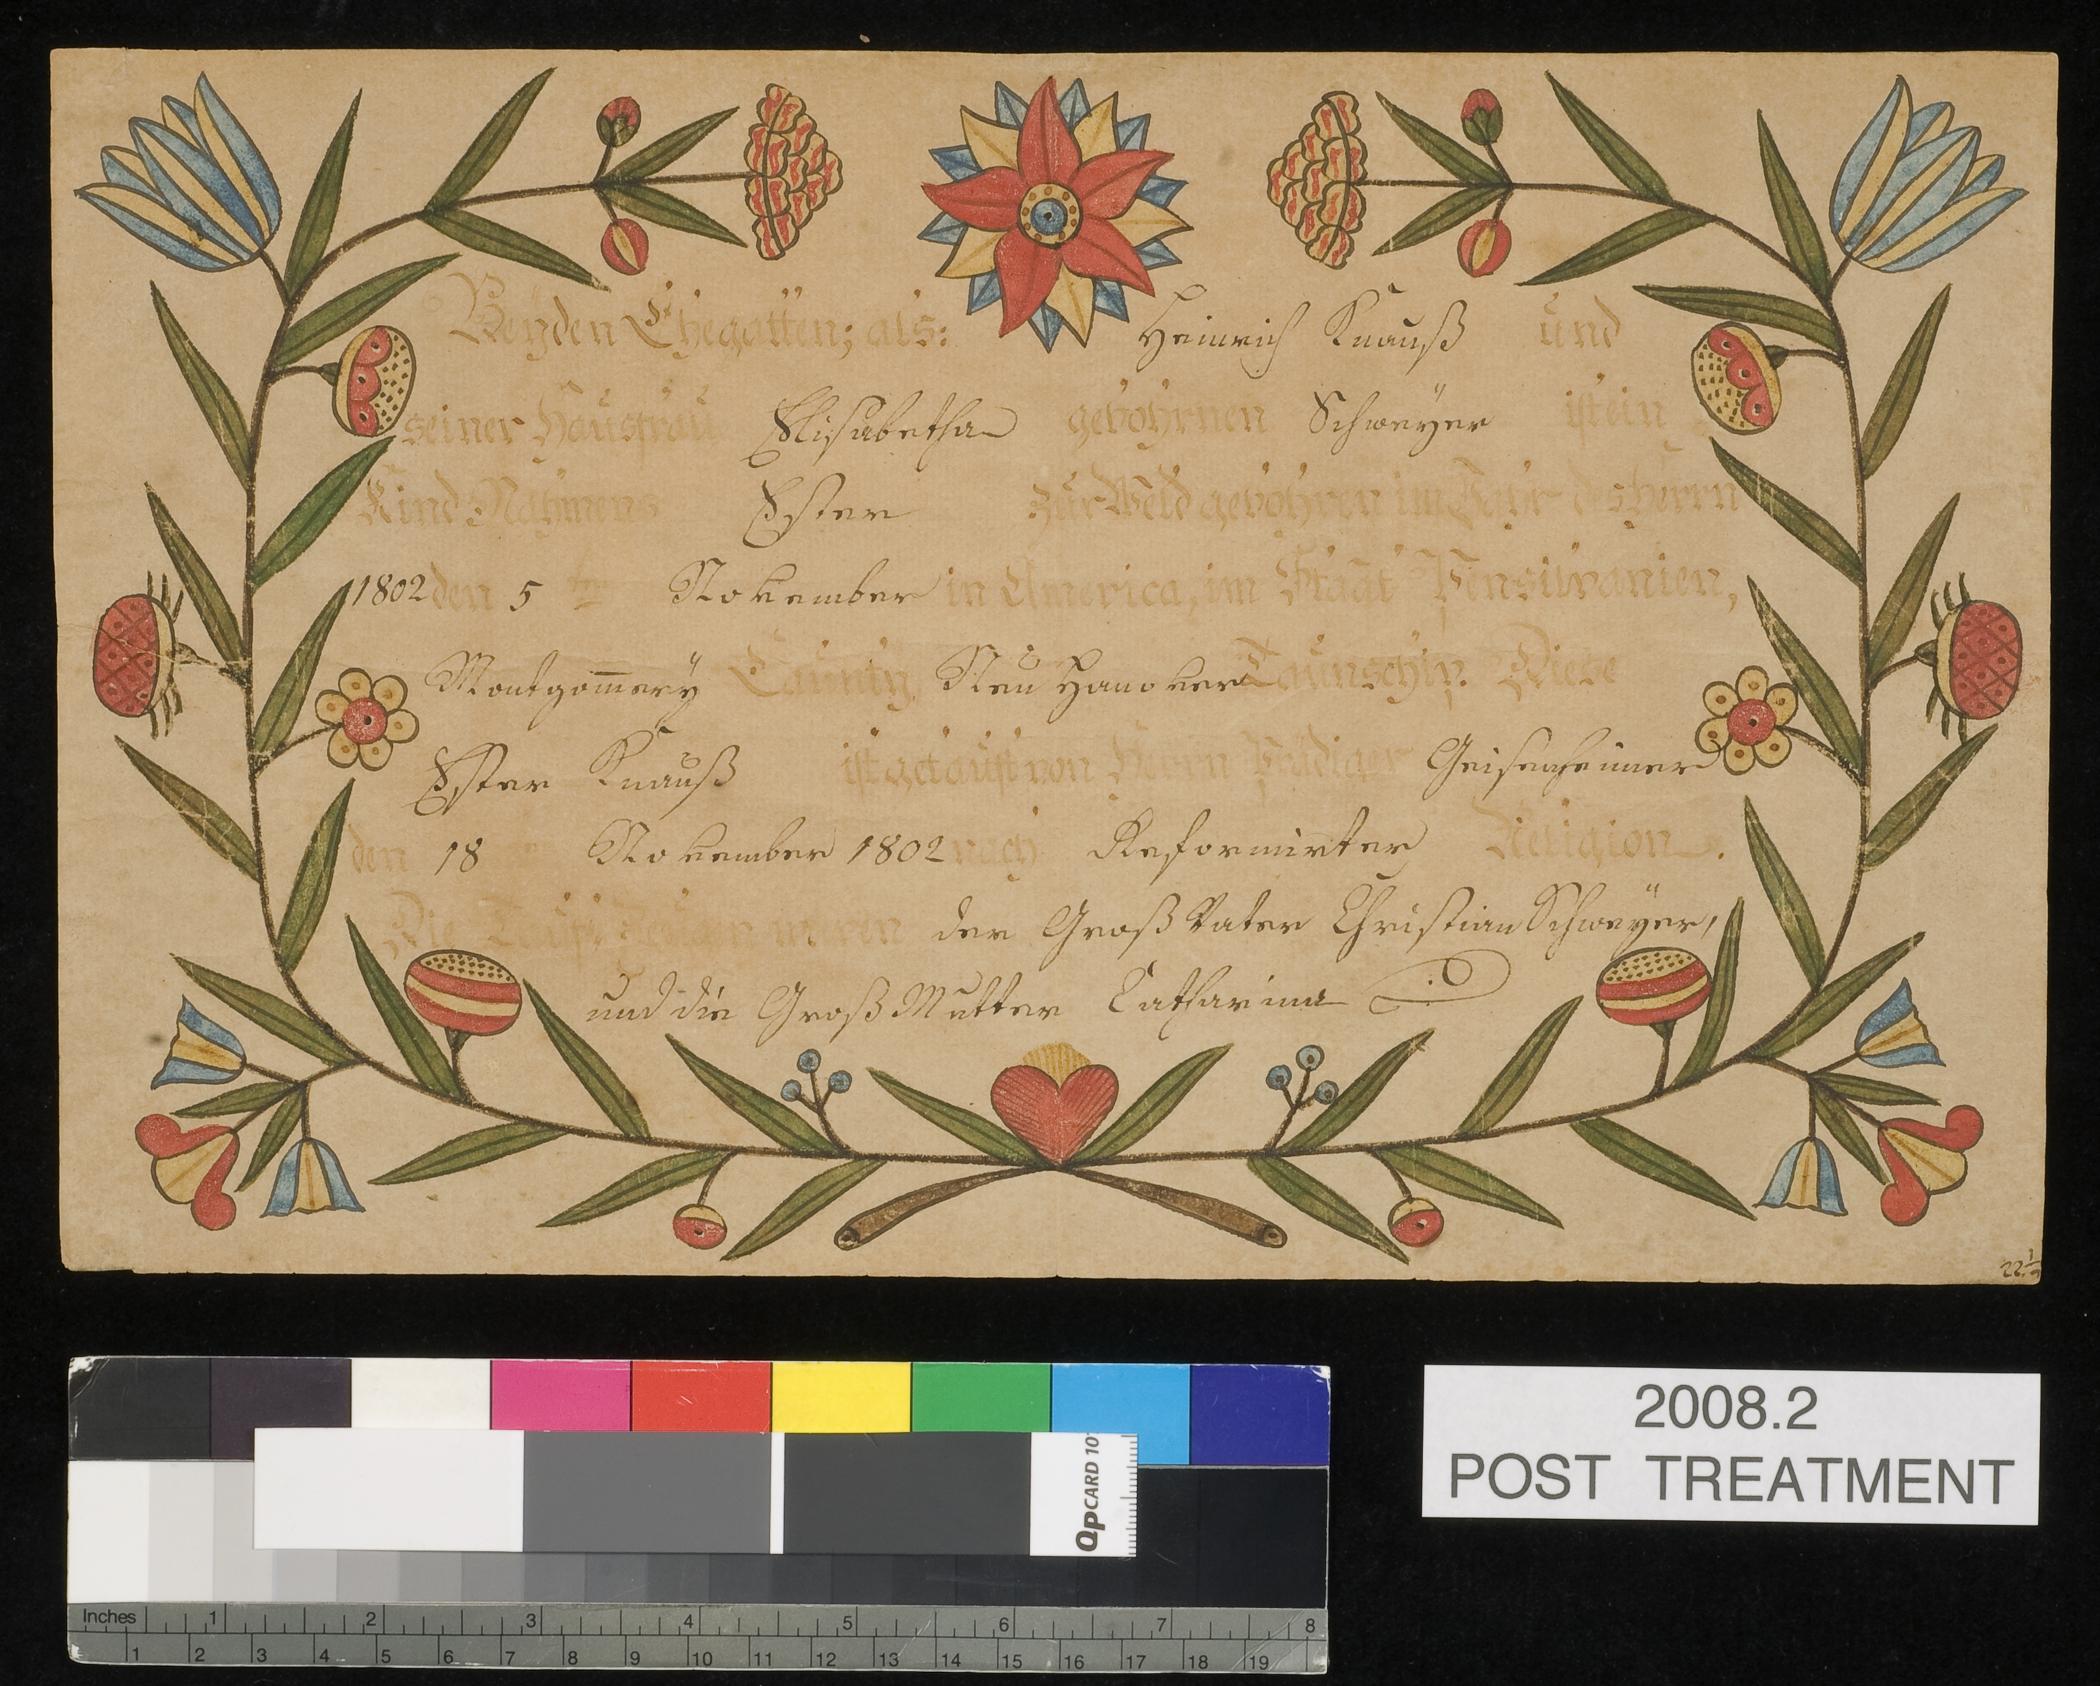 Beyden Ehegatten; als: Heinrich Knauß und
seiner Hausfrau Elisabetha gebohrnen Schweÿer ist ein
Kind Nahmens Ester zur Weld gebohren im Jahr des Herrn
1802 den 5 ten November in America, im Staat Pensilvanien,
Montgom̄erÿ Caunty Neu Hanover Taunschip. Diese
Ester Knauß ist getauft von Herrn Geisenheimer
den 18 November 1802 nach Reformirter Religion.
Die Tauf waren der Groß Vater Christian Schweÿer,
und die Groß Mutter Catharina
22 1/2
2008.2
POST TREATMENT
QPCARD 101
Inches 1 2 3 4 5 6 7 8
1 2 3 4 5 6 7 8 9 10 11 12 13 14 15 16 17 18 19